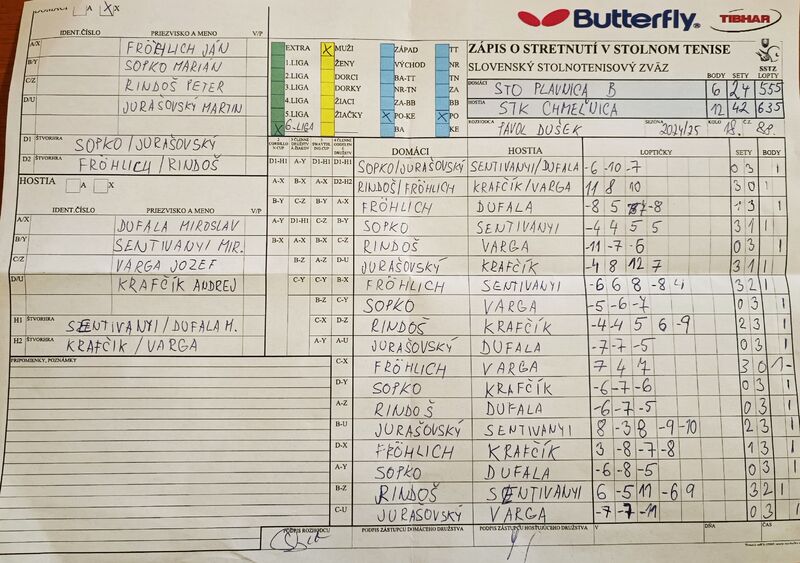 DOMÁCI A X
IDENT.ČÍSLO PRIEZVISKO A MENO V/P
A/X FRÖHLICH JÁN
B/Y SOPKO MARIÁN
C/Z RINDOŠ PETER
D/U JURAŠOVSKÝ MARTIN
D1 ŠTVORHRA SOPKO/JURAŠOVSKÝ
D2 ŠTVORHRA FRÖHLICH/RINDOŠ
HOSTIA A X
IDENT.ČÍSLO PRIEZVISKO A MENO V/P
A/X DUFALA MIROSLAV
B/Y SENTIVANYI MIR.
C/Z VARGA JOZEF
D/U KRAFČÍK ANDREJ
H1 ŠTVORHRA SENTIVANYI/DUFALA M.
H2 ŠTVORHRA KRAFČIK/VARGA
PRIPOMIENKY, POZNÁMKY
EXTRA X MUŽI ZÁPAD TT
1.LIGA ŽENY VÝCHOD NR
2.LIGA DORCI BA-TT TN
3.LIGA DORKY NR-TN ZA
4.LIGA ŽIACI ZA-BB BB
5.LIGA ŽIAČKY X PO-KE X PO
X 6.LIGA BA KE
Butterfly TIBHAR
ZÁPIS O STRETNUTÍ V STOLNOM TENISE
SLOVENSKÝ STOLNOTENISOVÝ ZVÄZ SSTZ
BODY SETY LOPTY
DOMÁCI STO PLAVNICA B 6 24 555
HOSTIA STK CHMEĽNICA 12 42 635
ROZHODCA PAVOL DUŠEK SEZÓNA 2024/25 KOLO 18. Č.Z. 89.
DOMÁCI HOSTIA LOPTIČKY SETY BODY
D1-H1 A-Y D1-H1 D1-H1 SOPKO/JURAŠOVSKÝ SENTIVANYI/DUFALA -6 -10 -7 0 3 1
A-X B-X A-X D2-H2 RINDOŠ/FRÖHLICH KRAFČÍK/VARGA 11 8 10 3 0 1
B-Y C-Z B-Y A-X FRÖHLICH DUFALA -8 5 -8 1 3 1
A-Y D1-H1 C-Z B-Y SOPKO SENTIVANYI -4 4 5 5 3 1 1
B-X A-X B-X C-Z RINDOŠ VARGA -11 -7 -6 0 3 1
B-Z A-Z D-U JURAŠOVSKÝ KRAFČÍK -4 8 12 7 3 1 1
C-Y C-Y B-X FRÖHLICH SENTIVANYI -6 6 8 -8 4 3 2 1
B-Z C-Y SOPKO VARGA -5 -6 -7 0 3 1
C-X D-Z RINDOŠ KRAFČÍK -4 -4 5 6 -9 2 3 1
A-Y A-U JURAŠOVSKÝ DUFALA -7 -7 -5 0 3 1
C-X FRÖHLICH VARGA 7 4 7 3 0 1 -
D-Y SOPKO KRAFČÍK -6 -7 -6 0 3 1
A-Z RINDOŠ DUFALA -6 -7 -5 0 3 1
B-U JURAŠOVSKÝ SENTIVANYI 8 -3 8 -9 -10 2 3 1
D-X FRÖHLICH KRAFČÍK 3 -8 -7 -8 1 3 1
A-Y SOPKO DUFALA -6 -8 -5 0 3 1
B-Z RINDOŠ SENTIVANYI 6 -5 11 -6 9 3 2 1
C-U JURAŠOVSKÝ VARGA -7 -7 -11 0 3 1
PODPIS ROZHODCU PODPIS ZÁSTUPCU DOMÁCEHO DRUŽSTVA PODPIS ZÁSTUPCU HOSŤUJÚCEHO DRUŽSTVA V DŇA ČAS